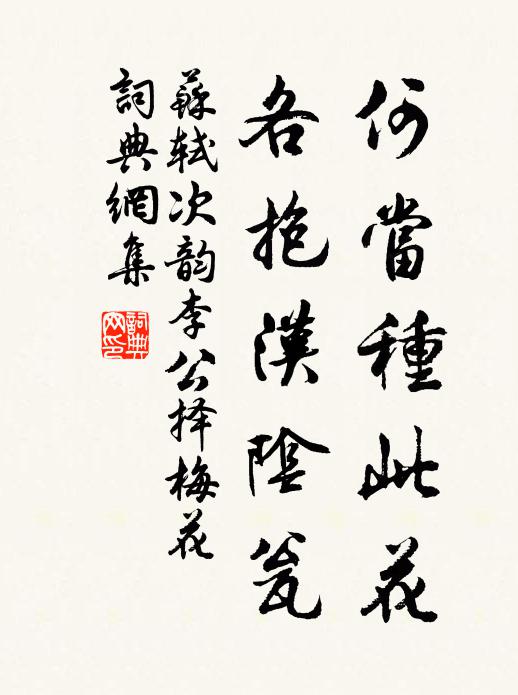 何當種此花
各抱漢陰瓮
蘇軾次韵李公择梅花
詞典網集
詞典網印